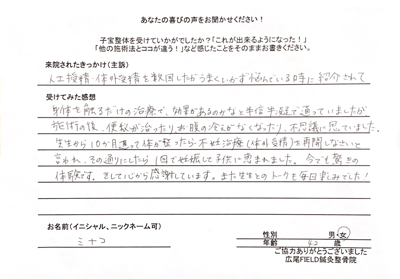 あなたの喜びの声をお聞かせください！
子宝整体を受けていかがでしたか？「これが出来るようになった！」
「他の施術法とココが違う！」など感じたことをそのままお書きください。
来院されたきっかけ(主訴)
人工授精、体外受精を数回したがうまくいかず悩んでいる時に紹介されて
受けてみた感想
身体を触るだけの治療で、効果があるのかなと半信半疑で通っていましたが
施術の後、便秘が治ったり、お腹の冷えがなくなったり、不思議に思っていました。
先生から10か月通って体が整ったら不妊治療(体外受精)を再開しなさいと
言われ、その通りにしたら1回で妊娠して子供に恵まれました。今でも驚きの
体験です。そして心から感謝しています。また先生とのトークも毎回楽しみでした！
お名前(イニシャル、ニックネーム可)
ミナコ
性別 男・女
年齢 42 歳
ご協力ありがとうございました
広尾FIELD鍼灸整骨院